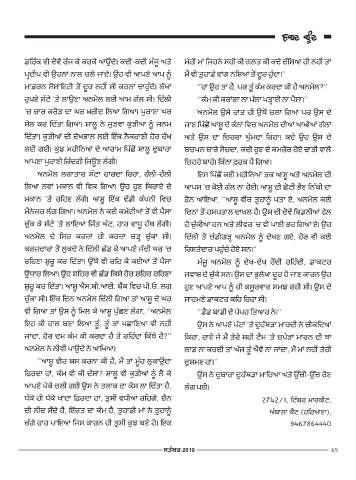 ਡਰਿੰਕ ਵੀ ਦੇਵੋ ਰੱਜ ਕੇ ਕਰਕੇ ਆਉਂਦੇ। ਕਦੀ-ਕਦੀ ਮੰਜੂ ਅਤੇ
ਪ੍ਰਦੀਪ ਵੀ ਉਹਨਾਂ ਨਾਲ ਚਲੇ ਜਾਂਦੇ। ਉਹ ਵੀ ਆਪਣੇ ਆਪ ਨੂੰ
ਮਾਡਰਨ ਸੋਸਾਇਟੀ ਤੋਂ ਦੂਰ ਨਹੀਂ ਸੀ ਕਰਨਾ ਚਾਹੁੰਦੇ। ਲੱਖਾਂ
ਰੁਪਏ ਸੱਟੇ 'ਤੇ ਲਾਉਣਾ ਅਨਮੋਲ ਲਈ ਆਮ ਗੱਲ ਸੀ। ਦਿੱਲੀ
'ਚ ਚਾਰ ਕਰੋੜ ਦਾ ਘਰ ਖ਼ਰੀਦ ਲਿਆ ਗਿਆ। ਪੁਰਾਣਾ ਘਰ
ਸੇਲ ਕਰ ਦਿੱਤਾ ਗਿਆ। ਸ਼ਾਲੂ ਨੇ ਜੁੜਵਾ ਕੁੜੀਆਂ ਨੂੰ ਜਨਮ
ਦਿੱਤਾ। ਕੁੜੀਆਂ ਦੀ ਦੇਖਭਾਲ ਲਈ ਇੱਕ ਨੌਕਰਾਣੀ ਹੋਰ ਰੱਖ
ਲਈ ਗਈ। ਕੁਝ ਮਹੀਨਿਆਂ ਦੇ ਆਰਾਮ ਪਿੱਛੋਂ ਸ਼ਾਲੂ ਦੁਬਾਰਾ
ਆਪਣਾ ਪੁਰਾਣੀ ਜ਼ਿੰਦਗੀ ਜਿਊਣ ਲੱਗੀ।
ਅਨਮੋਲ ਲਗਾਤਾਰ ਸੱਟਾ ਹਾਰਦਾ ਰਿਹਾ, ਹੌਲੀ-ਹੌਲੀ
ਲਿਆ ਨਵਾਂ ਮਕਾਨ ਵੀ ਵਿਕ ਗਿਆ। ਉਹ ਹੁਣ ਕਿਰਾਏ ਦੇ
ਮਕਾਨ 'ਤੇ ਰਹਿਣ ਲੱਗੇ। ਆਸ਼ੂ ਇੱਕ ਵੱਡੀ ਕੰਪਨੀ ਵਿਚ
ਮੈਨੇਜਰ ਲੱਗ ਗਿਆ। ਅਨਮੋਲ ਨੇ ਕਈ ਕਮੇਟੀਆਂ ਤੋਂ ਵੀ ਪੈਸਾ
ਚੁੱਕ ਕੇ ਸੱਟੇ 'ਤੇ ਲਾਇਆ ਜਿੱਤ ਘੱਟ, ਹਾਰ ਵਾਧੂ ਹੱਥ ਲੱਗੀ।
ਅਨਮੋਲ ਦੇ ਸਿਰ ਕਰਜ਼ਾ ਹੀ ਕਰਜ਼ਾ ਚੜ੍ਹ ਚੁੱਕਾ ਸੀ।
ਕਰਜ਼ਦਾਰਾਂ ਤੋਂ ਲੁਕਦੇ ਨੇ ਦਿੱਲੀ ਛੱਡ ਕੇ ਆਪਣੇ ਜੱਦੀ ਘਰ 'ਚ
ਰਹਿਣਾ ਸ਼ੁਰੂ ਕਰ ਦਿੱਤਾ। ਉੱਥੋਂ ਵੀ ਰਹਿ ਕੇ ਕਈਆਂ ਤੋਂ ਪੈਸਾ
ਉਧਾਰ ਲਿਆ। ਉਹ ਸ਼ਹਿਰ ਵੀ ਛੱਡ ਕਿਸੇ ਹੋਰ ਸ਼ਹਿਰ ਰਹਿਣਾ
ਸ਼ੁਰੂ ਕਰ ਦਿੱਤਾ। ਆਸ਼ੂ ਐਸ.ਬੀ.ਆਈ. ਬੈਂਕ ਵਿਚ ਪੀ.ਓ. ਲਗ
ਚੁੱਕਾ ਸੀ। ਇੱਕ ਦਿਨ ਅਨਮੋਲ ਦਿੱਲੀ ਗਿਆ ਤਾਂ ਆਸ਼ੂ ਦੇ ਘਰ
ਵੀ ਗਿਆ ਤਾਂ ਉਸ ਨੂੰ ਮਿਲ ਕੇ ਆਸ਼ੂ ਪੁੱਛਣ ਲੱਗਾ, ''ਅਨਮੋਲ
ਇਹ ਕੀ ਹਾਲ ਬਣਾ ਲਿਆ ਤੂੰ, ਤੂੰ ਤਾਂ ਪਛਾਣਿਆ ਵੀ ਨਹੀਂ
ਜਾਂਦਾ, ਹੋਰ ਦਸ ਕੰਮ ਕੀ ਕਰਦਾ ਹੈ ਤੇ ਰਹਿੰਦਾ ਕਿੱਥੇ ਹੈ?''
ਅਨਮੋਲ ਨੇ ਨੀਵੀਂ ਪਾਉਂਦੇ ਨੇ ਆਖਿਆ।
''ਆਸ਼ੂ ਵੀਰ ਬਸ ਕਰਨਾ ਕੀ ਹੈ, ਮੈਂ ਤਾਂ ਮੂੰਹ ਲੁਕਾਉਂਦਾ
ਫਿਰਦਾ ਹਾਂ, ਕੰਮ ਵੀ ਕੀ ਦੱਸਾਂ? ਸ਼ਾਲੂ ਵੀ ਕੁੜੀਆਂ ਨੂੰ ਲੈ ਕੇ
ਆਪਣੇ ਪੇਕੇ ਚਲੀ ਗਈ ਉਸ ਨੇ ਤਲਾਕ ਦਾ ਕੇਸ ਲਾ ਦਿੱਤਾ ਹੈ,
ਧੱਕੇ ਹੀ ਧੱਕੇ ਖਾਂਦਾ ਫਿਰਦਾ ਹਾਂ, ਤੁਸੀਂ ਵਧੀਆ ਰਹਿਗੇ, ਚੈਨ
ਦੀ ਨੀਂਦ ਸੌਂਦੇ ਹੋ, ਇੱਜ਼ਤ ਦਾ ਕੰਮ ਹੈ, ਤੁਹਾਡੀ ਮਾਂ ਨੇ ਤੁਹਾਨੂੰ
ਚੰਗੇ ਰਾਹ ਪਾਇਆ ਜਿਸ ਕਾਰਨ ਹੀ ਤੁਸੀਂ ਕੁਝ ਬਣੇ ਹੋ। ਇਕ
ਮੇਰੀ ਮਾਂ ਜਿਹਨੇ ਸਹੀ ਕੀ ਗਲਤ ਕੀ ਕਦੇ ਦੱਸਿਆ ਹੀ ਨਹੀਂ ਤਾਂ
ਮੈਂ ਵੀ ਤੁਹਾਡੇ ਵਾਂਗ ਨਸ਼ਿਆਂ ਤੋਂ ਦੂਰ ਹੁੰਦਾ।''
''ਹਾਂ ਉਹ ਤਾਂ ਹੈ, ਪਰ ਤੂੰ ਕੰਮ ਕਰਦਾ ਕੀ ਹੈ ਅਨਮੋਲ?''
''ਕੰਮ ਕੀ ਕਰਾਂਗਾ ਨਾ ਪੱਲਾ ਪੜ੍ਹਾਈ ਨਾ ਪੈਸਾ।''
ਅਨਮੋਲ ਉਸੇ ਰਾਤ ਹੀ ਉਥੋਂ ਚਲਾ ਗਿਆ ਪਰ ਉਸ ਦੇ
ਜਾਣ ਪਿੱਛੋਂ ਆਸ਼ੂ ਦੇ ਕੰਨਾਂ ਵਿਚ ਅਨਮੋਲ ਦੀਆਂ ਆਖੀਆਂ ਗੱਲਾਂ
ਅਤੇ ਉਸ ਦਾ ਚਿਹਰਾ ਘੁੰਮਦਾ ਰਿਹਾ। ਕਦੇ ਉਹ ਉਸ ਦੇ
ਬਚਪਨ ਬਾਰੇ ਸੋਚਦਾ, ਕਦੀ ਹੁਣ ਦੇ ਕਮਜ਼ੋਰ ਹੋਏ ਢਾਡੀ ਵਾਲੇ
ਚਿਹਰੇ ਬਾਰੇ। ਕਿੰਨਾ ਫ਼ਰਕ ਪੈ ਗਿਆ।
ਇਸ ਪਿੱਛੋਂ ਕਈ ਮਹੀਨਿਆਂ ਤਕ ਆਸ਼ੂ ਅਤੇ ਅਨਮੋਲ ਦੀ
ਆਪਸ 'ਚ ਕੋਈ ਗੱਲ ਨਾ ਹੋਈ। ਆਸ਼ੂ ਦੀ ਛੋਟੀ ਭੈਣ ਨਿੱਕੀ ਦਾ
ਫ਼ੋਨ ਆਇਆ, ''ਆਸ਼ੂ ਵੀਰ ਤੁਹਾਨੂੰ ਪਤਾ ਏ, ਅਨਮੋਲ ਕਈ
ਦਿਨਾਂ ਤੋਂ ਹਸਪਤਾਲ ਦਾਖ਼ਲ ਹੈ। ਉਸ ਦੀ ਦੋਵੇਂ ਕਿਡਨੀਆਂ ਫੇਲ
ਹੋ ਚੁੱਕੀਆਂ ਹਨ ਅਤੇ ਲੀਵਰ 'ਚ ਵੀ ਪਾਣੀ ਭਰ ਗਿਆ ਏ। ਉਹ
ਦਿੱਲੀ ਤੋਂ ਚੰਡੀਗੜ੍ਹ ਅਨਮੋਲ ਨੂੰ ਦੇਖਣ ਗਏ, ਹੋਰ ਵੀ ਕਈ
ਰਿਸ਼ਤੇਦਾਰ ਪਹੁੰਚੇ ਹੋਏ ਸਨ।''
ਮੰਜੂ ਅਨਮੋਲ ਨੂੰ ਦੇਖ-ਦੇਖ ਰੋਂਦੀ ਰਹਿੰਦੀ, ਡਾਕਟਰ
ਜਵਾਬ ਦੇ ਚੁੱਕੇ ਸਨ। ਉਸ ਦਾ ਭੁਲੇਖਾ ਦੂਰ ਹੋ ਜਾਣ ਕਾਰਨ ਉਹ
ਹੁਣ ਆਪਣੇ ਆਪ ਨੂੰ ਹੀ ਕਸੂਰਵਾਰ ਸਮਝ ਰਹੀ ਸੀ। ਉਸ ਦੇ
ਸਾਹਮਣੇ ਡਾਕਟਰ ਕਹਿ ਰਿਹਾ ਸੀ।
''ਡੈੱਡ ਬਾਡੀ ਦੇ ਪੇਪਰ ਤਿਆਰ ਨੇ।''
ਉਸ ਨੇ ਆਪਣੇ ਪੱਟਾਂ 'ਤੇ ਦੁਹੱਥੜਾ ਮਾਰਦੀ ਨੇ ਚੀਕਦਿਆਂ
ਕਿਹਾ, ਹਾਏ ਜੇ ਮੈਂ ਤੇਰੇ ਸਹੀ ਟੈਮ 'ਤੇ ਚਪੇੜਾਂ ਮਾਰਨ ਦੀ ਥਾਂ
ਲਾਡ ਨਾ ਕਰਦੀ ਤਾਂ ਅੱਜ ਤੂੰ ਐਵੇਂ ਨਾ ਜਾਂਦਾ, ਮੈਂ ਮਾਂ ਨਹੀਂ ਤੇਰੀ
ਦੁਸ਼ਮਣ ਹਾਂ।''
ਉਸ ਨੇ ਦੁਬਾਰਾ ਦੁਹੱਥੜਾ ਮਾਰਿਆ ਅਤੇ ਉੱਚੀ-ਉੱਚ ਰੋਣ
ਲੱਗ ਪਈ।
2742/1, ਟਿੰਬਰ ਮਾਰਕੀਟ,
ਅੰਬਾਲਾ ਕੈਂਟ (ਹਰਿਆਣਾ),
9467864440
ਸਤੰਬਰ-2019
65